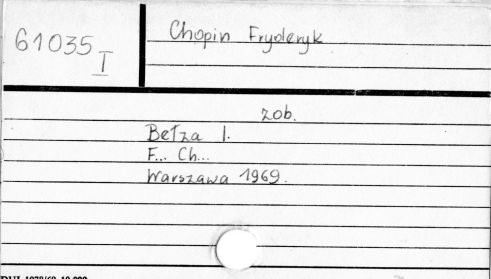 61035 I
Chopin Fryderyk
zob.
Bełza I.
F... Ch...
Warszawa 1969.